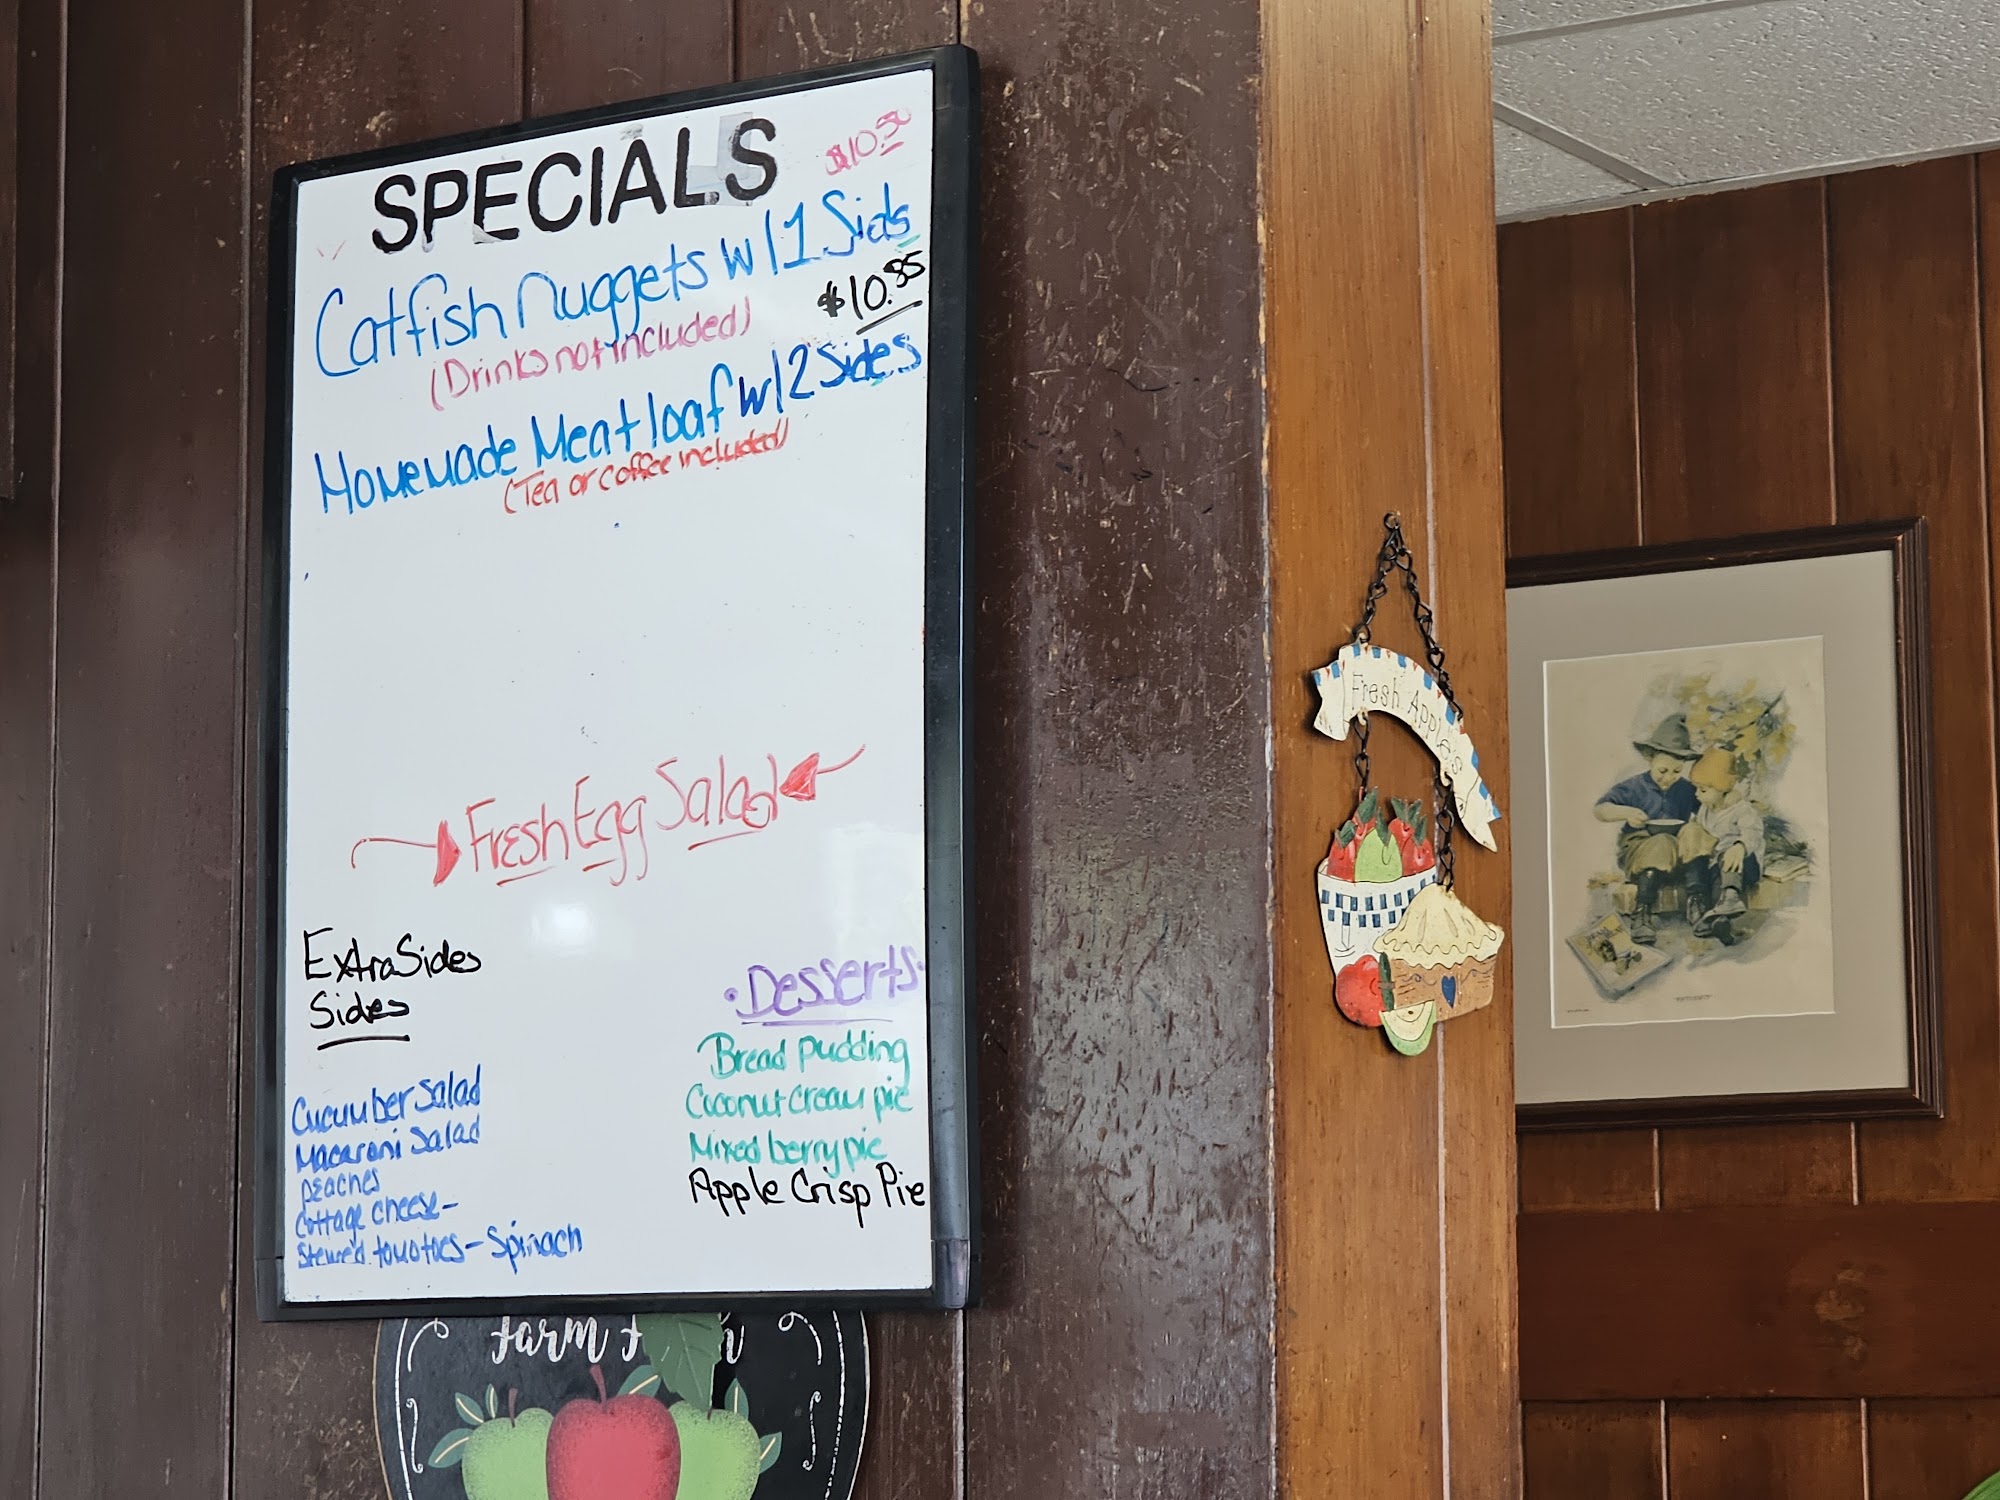 SPECIALS
$10.50
Catfish nuggets w/1 Side
$10.85
(Drinks not included)
Homemade Meatloaf w/2 Sides
(Tea or coffee included)
Fresh Egg Salad
Extra Sides
Sides
Cucumber Salad
Macaroni Salad
peaches
Cottage cheese-
Stewed tomatoes - Spinach
• Desserts •
Bread pudding
Coconut cream pie
Mixed berry pie
Apple Crisp Pie
Farm
Fresh Apples